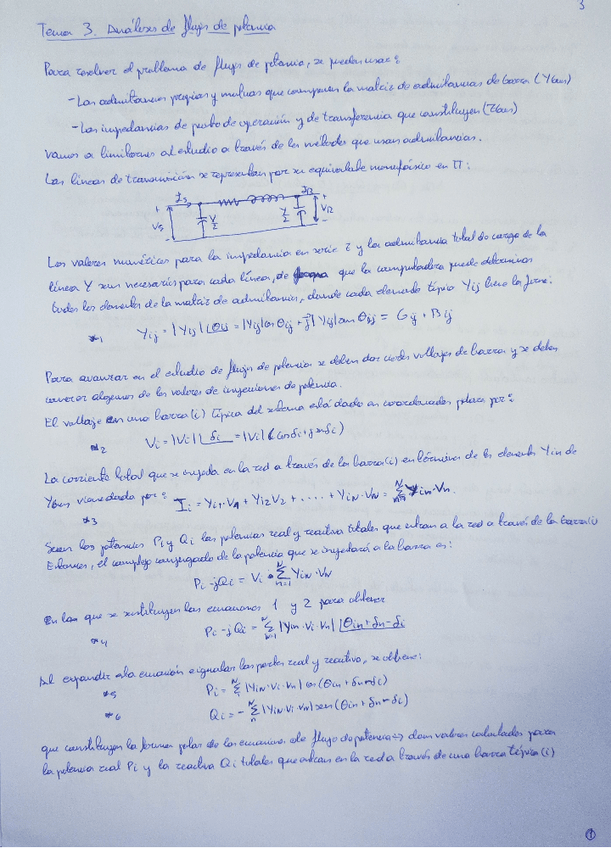 3
Tema 3. Análisis de flujos de potencia
Para resolver el problema de flujos de potencia, se pueden usar:
- Las admitancias propias y mutuas que componen la matriz de admitancias de barra (Ybus)
- Las impedancias de punto de operación y de transferencia que constituyen (Zbus)
vamos a limitarnos al estudio a través de los métodos que usan admitancias.
Las líneas de transmisión se representan por su equivalente monofásico en Π:
+ Is IR +
VS Y/2 Y/2 VR
- -
Los valores numéricos para la impedancia en serie Z y la admitancia total de carga de la
línea Y son necesarios para cada línea, de que la computadora puede determinar
todos los elementos de la matriz de admitancias, donde cada elemento típico Yij tiene la forma:
*1 Yij = |Yij| ∠θij = |Yij| cos θij + j |Yij| sen θij = Gij + Bij
Para avanzar en el estudio de flujos de potencia se deben dar ciertos voltajes de barras y se deben
conocer algunos de los valores de inyecciones de potencia.
El voltaje en una barra (i) típica del sistema está dado en coordenadas polares por:
*2 Vi = |Vi| ∠δi = |Vi| (cos δi + j sen δi)
La corriente total que se inyecta en la red a través de la barra (i) en términos de los elementos Yin de
Ybus viene dada por: Ii = Yi1·V1 + Yi2 V2 + .... + YiN·VN = Σ Yin·Vn.
*3
Sean las potencias Pi y Qi las potencias real y reactiva totales que entran a la red a través de la barra (i)
Entonces, el complejo conjugado de la potencia que se inyectará a la barra es:
Pi - jQi = Vi * Σ Yin·VN
en las que se sustituyen las ecuaciones 1 y 2 para obtener
*4 Pi - jQi = Σ |Yin·Vi·Vn| ∠θin + δn - δi
Al expandir esta ecuación e igualar las partes real y reactiva, se obtiene:
*5 Pi = Σ |Yin·Vi·Vn| cos (θin + δn - δi)
*6 Qi = - Σ |Yin·Vi·Vn| sen (θin + δn - δi)
que constituyen la forma polar de las ecuaciones de flujo de potencia => dan valores calculados para
la potencia real Pi y la reactiva Qi totales que entran en la red a través de una barra típica (i)
1